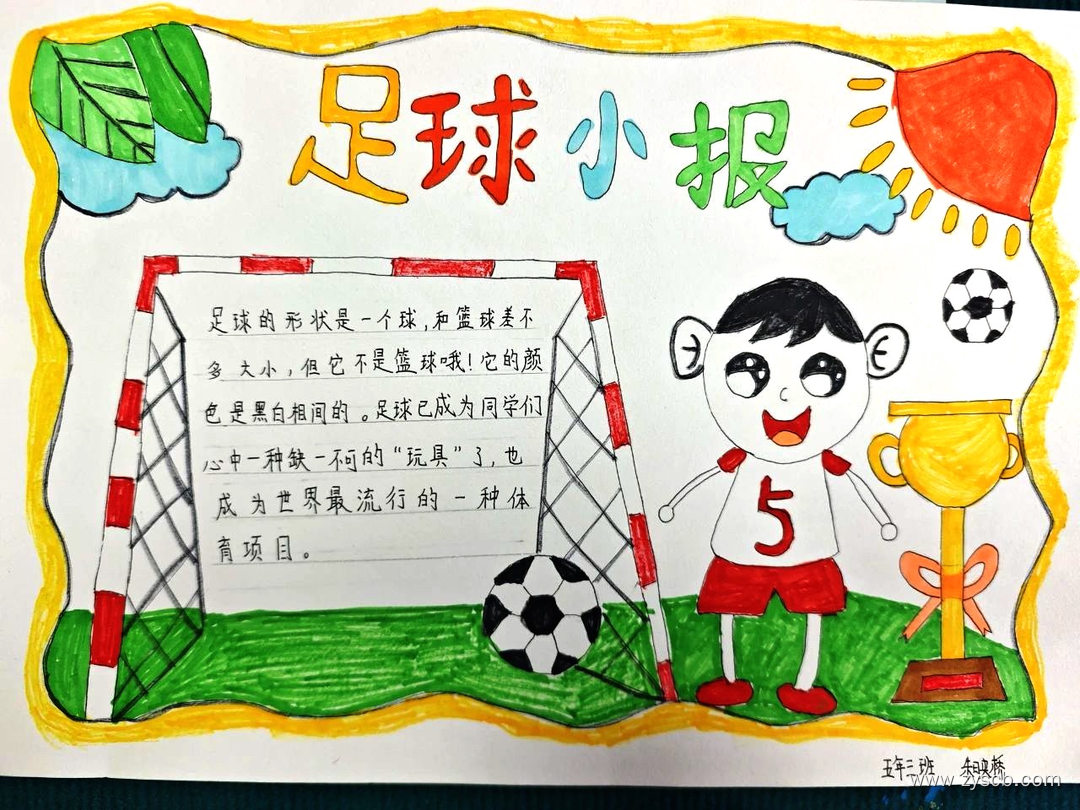 足球小报
足球的形状是一个球,和篮球差不
多大小,但它不是篮球哦!它的颜
色是黑白相间的。足球已成为同学们
心中一种缺一不可的“玩具”了,也
成为世界最流行的一种体
育项目。
5
五年三班
www.zyscb.com